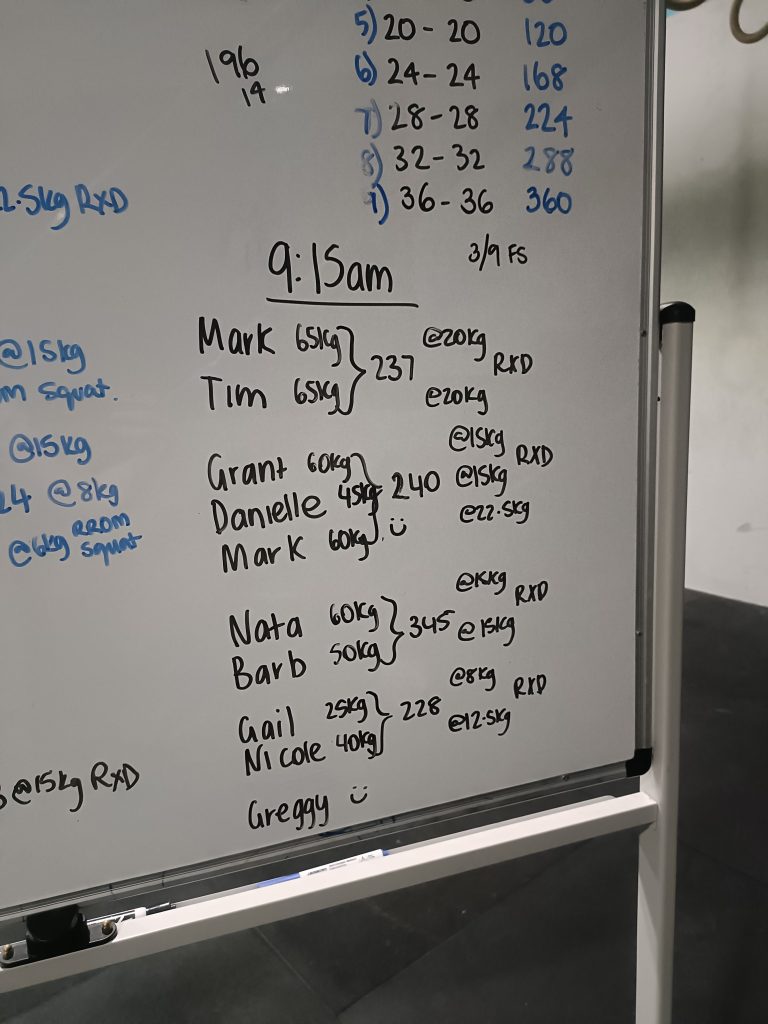 5) 20 - 20 120
196
14
6) 24 - 24 168
7) 28 - 28 224
8) 32 - 32 288
9) 36 - 36 360
2.5kg RXD
3/9 FS
9:15am
Mark 65kg
Tim 65kg
237
@20kg
RXD
@20kg
@15kg
squat.
@15kg
24 @8kg
@6kg RROM
squat
Grant 60kg
Danielle 45kg
Mark 60kg
240
@15kg
RXD
@15kg
@22.5kg
Nata 60kg
Barb 50kg
345
RXD
@15kg
Gail 25kg
Nicole 40kg
228
@8kg
RXD
@12.5kg
@15kg RXD
Greggy